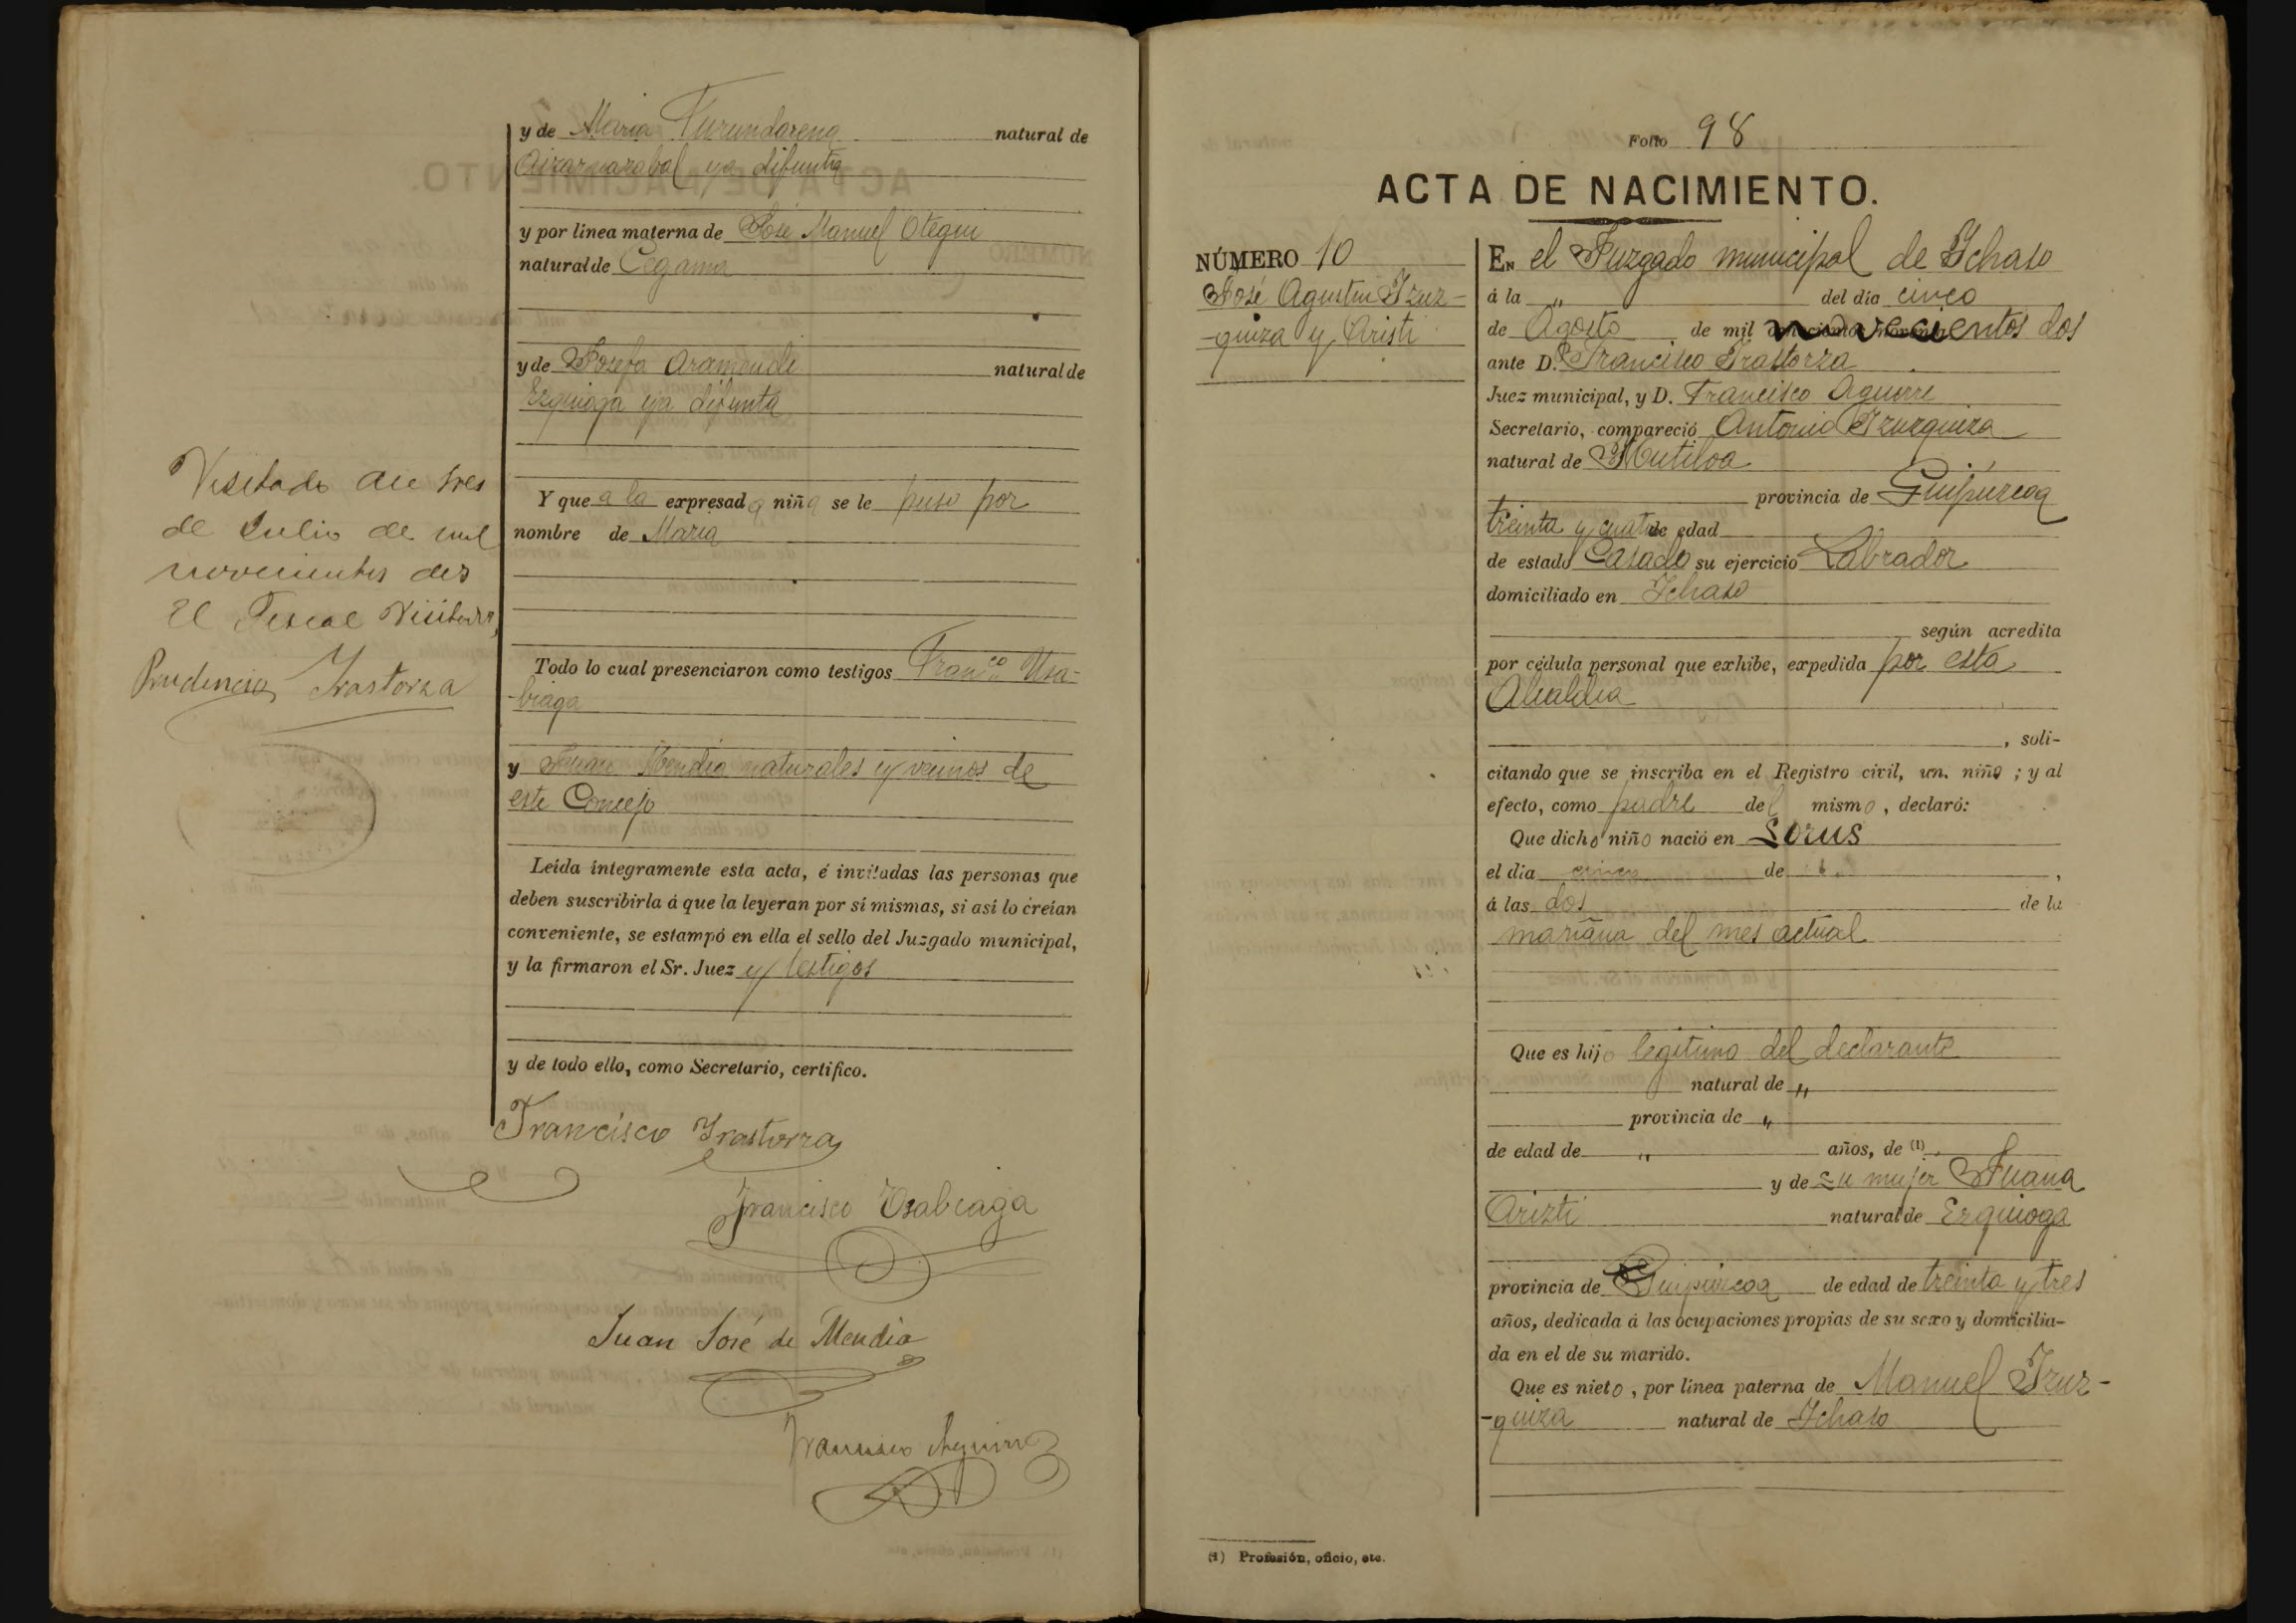 y de Maria Turundarena natural de
Aizarnazabal ya difunta
y por línea materna de José Manuel Otegui
natural de Cegama
y de Josefa Aramendi natural de
Ezquioga ya difunta
Y que a la expresada niña se le puso por
nombre de Maria
Todo lo cual presenciaron como testigos Fran.co Usa-
-biaga
y Juan Mendia naturales y vecinos de
este Concejo
Leída íntegramente esta acta, é invitadas las personas que
deben suscribirla á que la leyeran por sí mismas, si así lo creían
conveniente, se estampó en ella el sello del Juzgado municipal,
y la firmaron el Sr. Juez y testigos
y de todo ello, como Secretario, certifico.
Francisco Irastorza
Francisco Usabiaga
Juan José de Mendia
Francisco Aguirre
Visitado en tres
de Julio de mil
novecientos dos
El Fiscal Visitador,
Prudencio Irastorza
Folio 98
ACTA DE NACIMIENTO.
NÚMERO 10
José Agustin Izuz-
-quiza y Aristi
En el Juzgado municipal de Ichaso
á la " del día cinco
de Agosto de mil novecientos dos
ante D. Francisco Irastorza
Juez municipal, y D. Francisco Aguirre
Secretario, compareció Antonio Izuzquiza
natural de Mutiloa
provincia de Guipúzcoa
treinta y cuatro de edad
de estado Casado su ejercicio Labrador
domiciliado en Ichaso
según acredita
por cédula personal que exhibe, expedida por esta
Alcaldia
, soli-
citando que se inscriba en el Registro civil, un niño ; y al
efecto, como padre del mismo, declaró:
Que dicho niño nació en
el día cinco de
á las dos de la
mañana del mes actual
Que es hijo legitimo del declarante
natural de "
provincia de "
de edad de " años, de (1)
y de su mujer Juana
Arizti natural de Ezquioga
provincia de Guipúzcoa de edad de treinta y tres
años, dedicada á las ocupaciones propias de su sexo y domicilia-
da en el de su marido.
Que es nieto, por línea paterna de Manuel Izuz-
-quiza natural de Ichaso
(1) Profesión, oficio, etc.